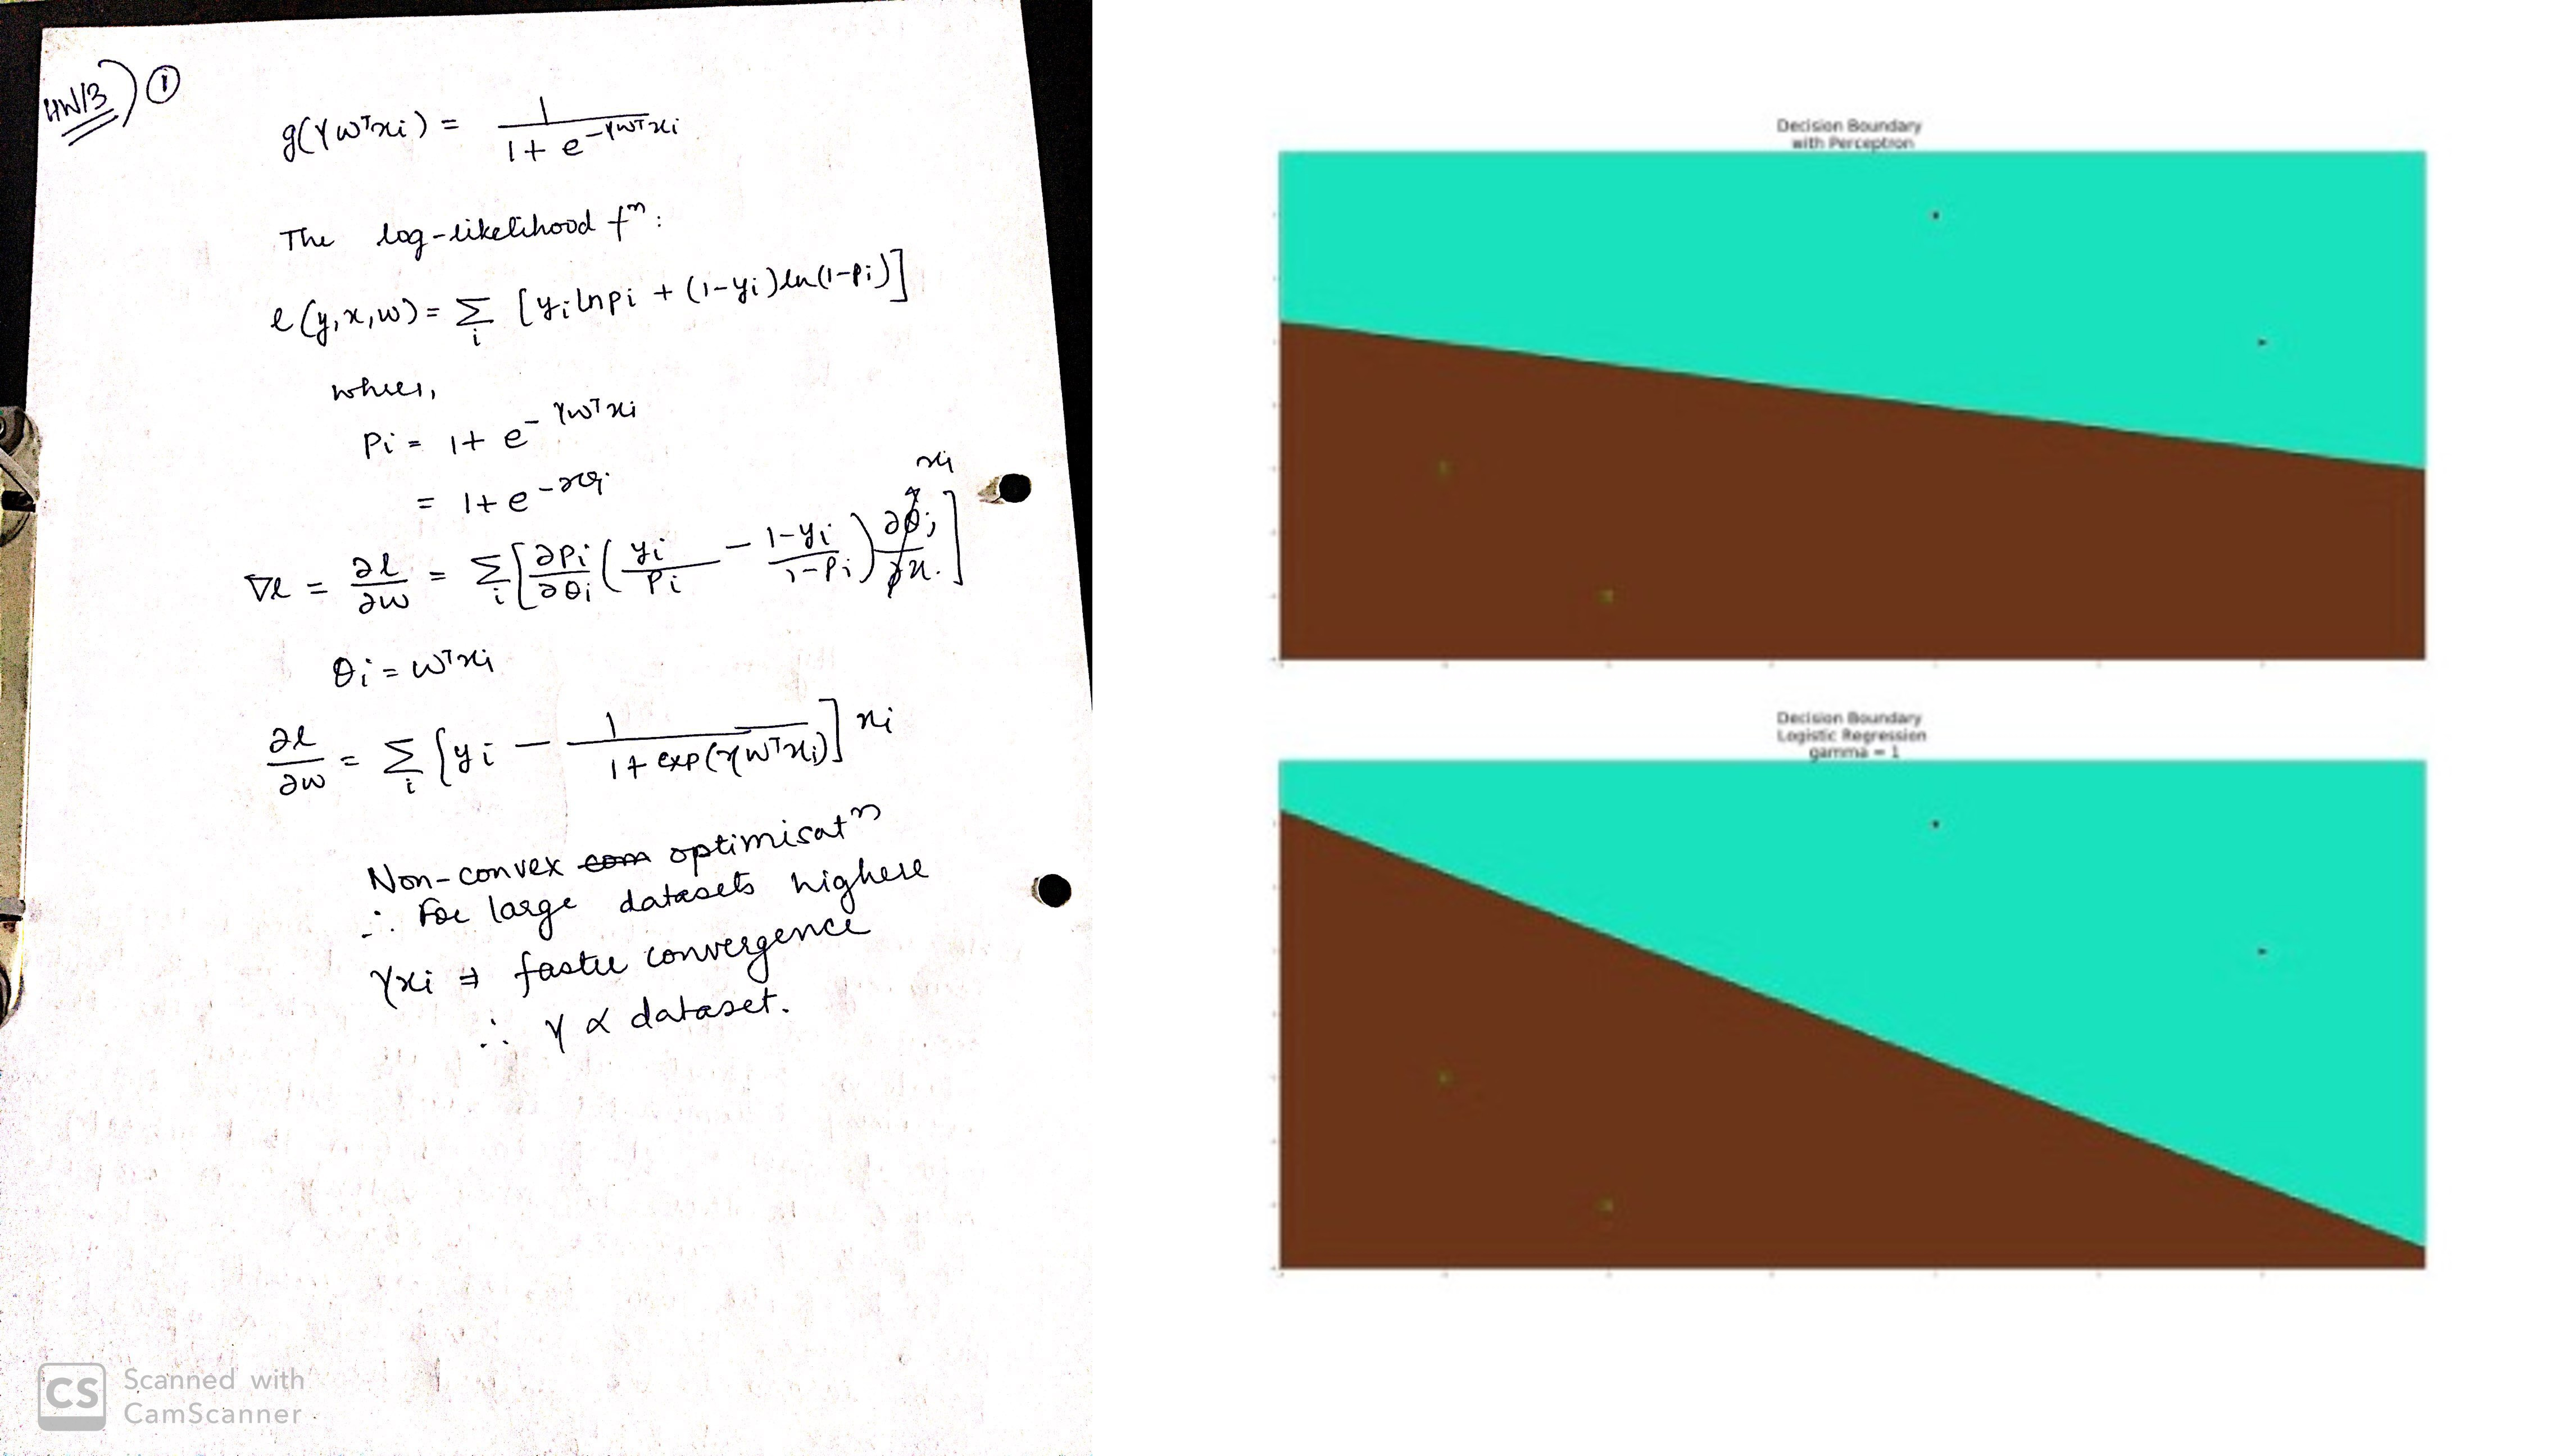 HW13) ①
g(γwᵀxi) = 1 / (1 + e^(-γwᵀxi))
The log-likelihood fⁿ:
l(y,x,w) = Σ_i [yi ln pi + (1-yi) ln(1-pi)]
Pi = 1 + e^(-γwᵀxi)
= 1 + e
∇l = ∂l/∂w = Σ_i [∂Pi/∂θi (yi/Pi - (1-yi)/(1-Pi)) ∂θi/∂x.] xi
θi = wᵀxi
∂l/∂w = Σ_i [yi - 1/(1 + exp(γwᵀxi))] xi
Non-convex com optimisatⁿ
∴ For large datasets highere
γxi ⇒ faster convergence
∴ γ α dataset.
CS Scanned with
CamScanner
Decision Boundary
with Perceptron
Decision Boundary
Logistic Regression
gamma = 1